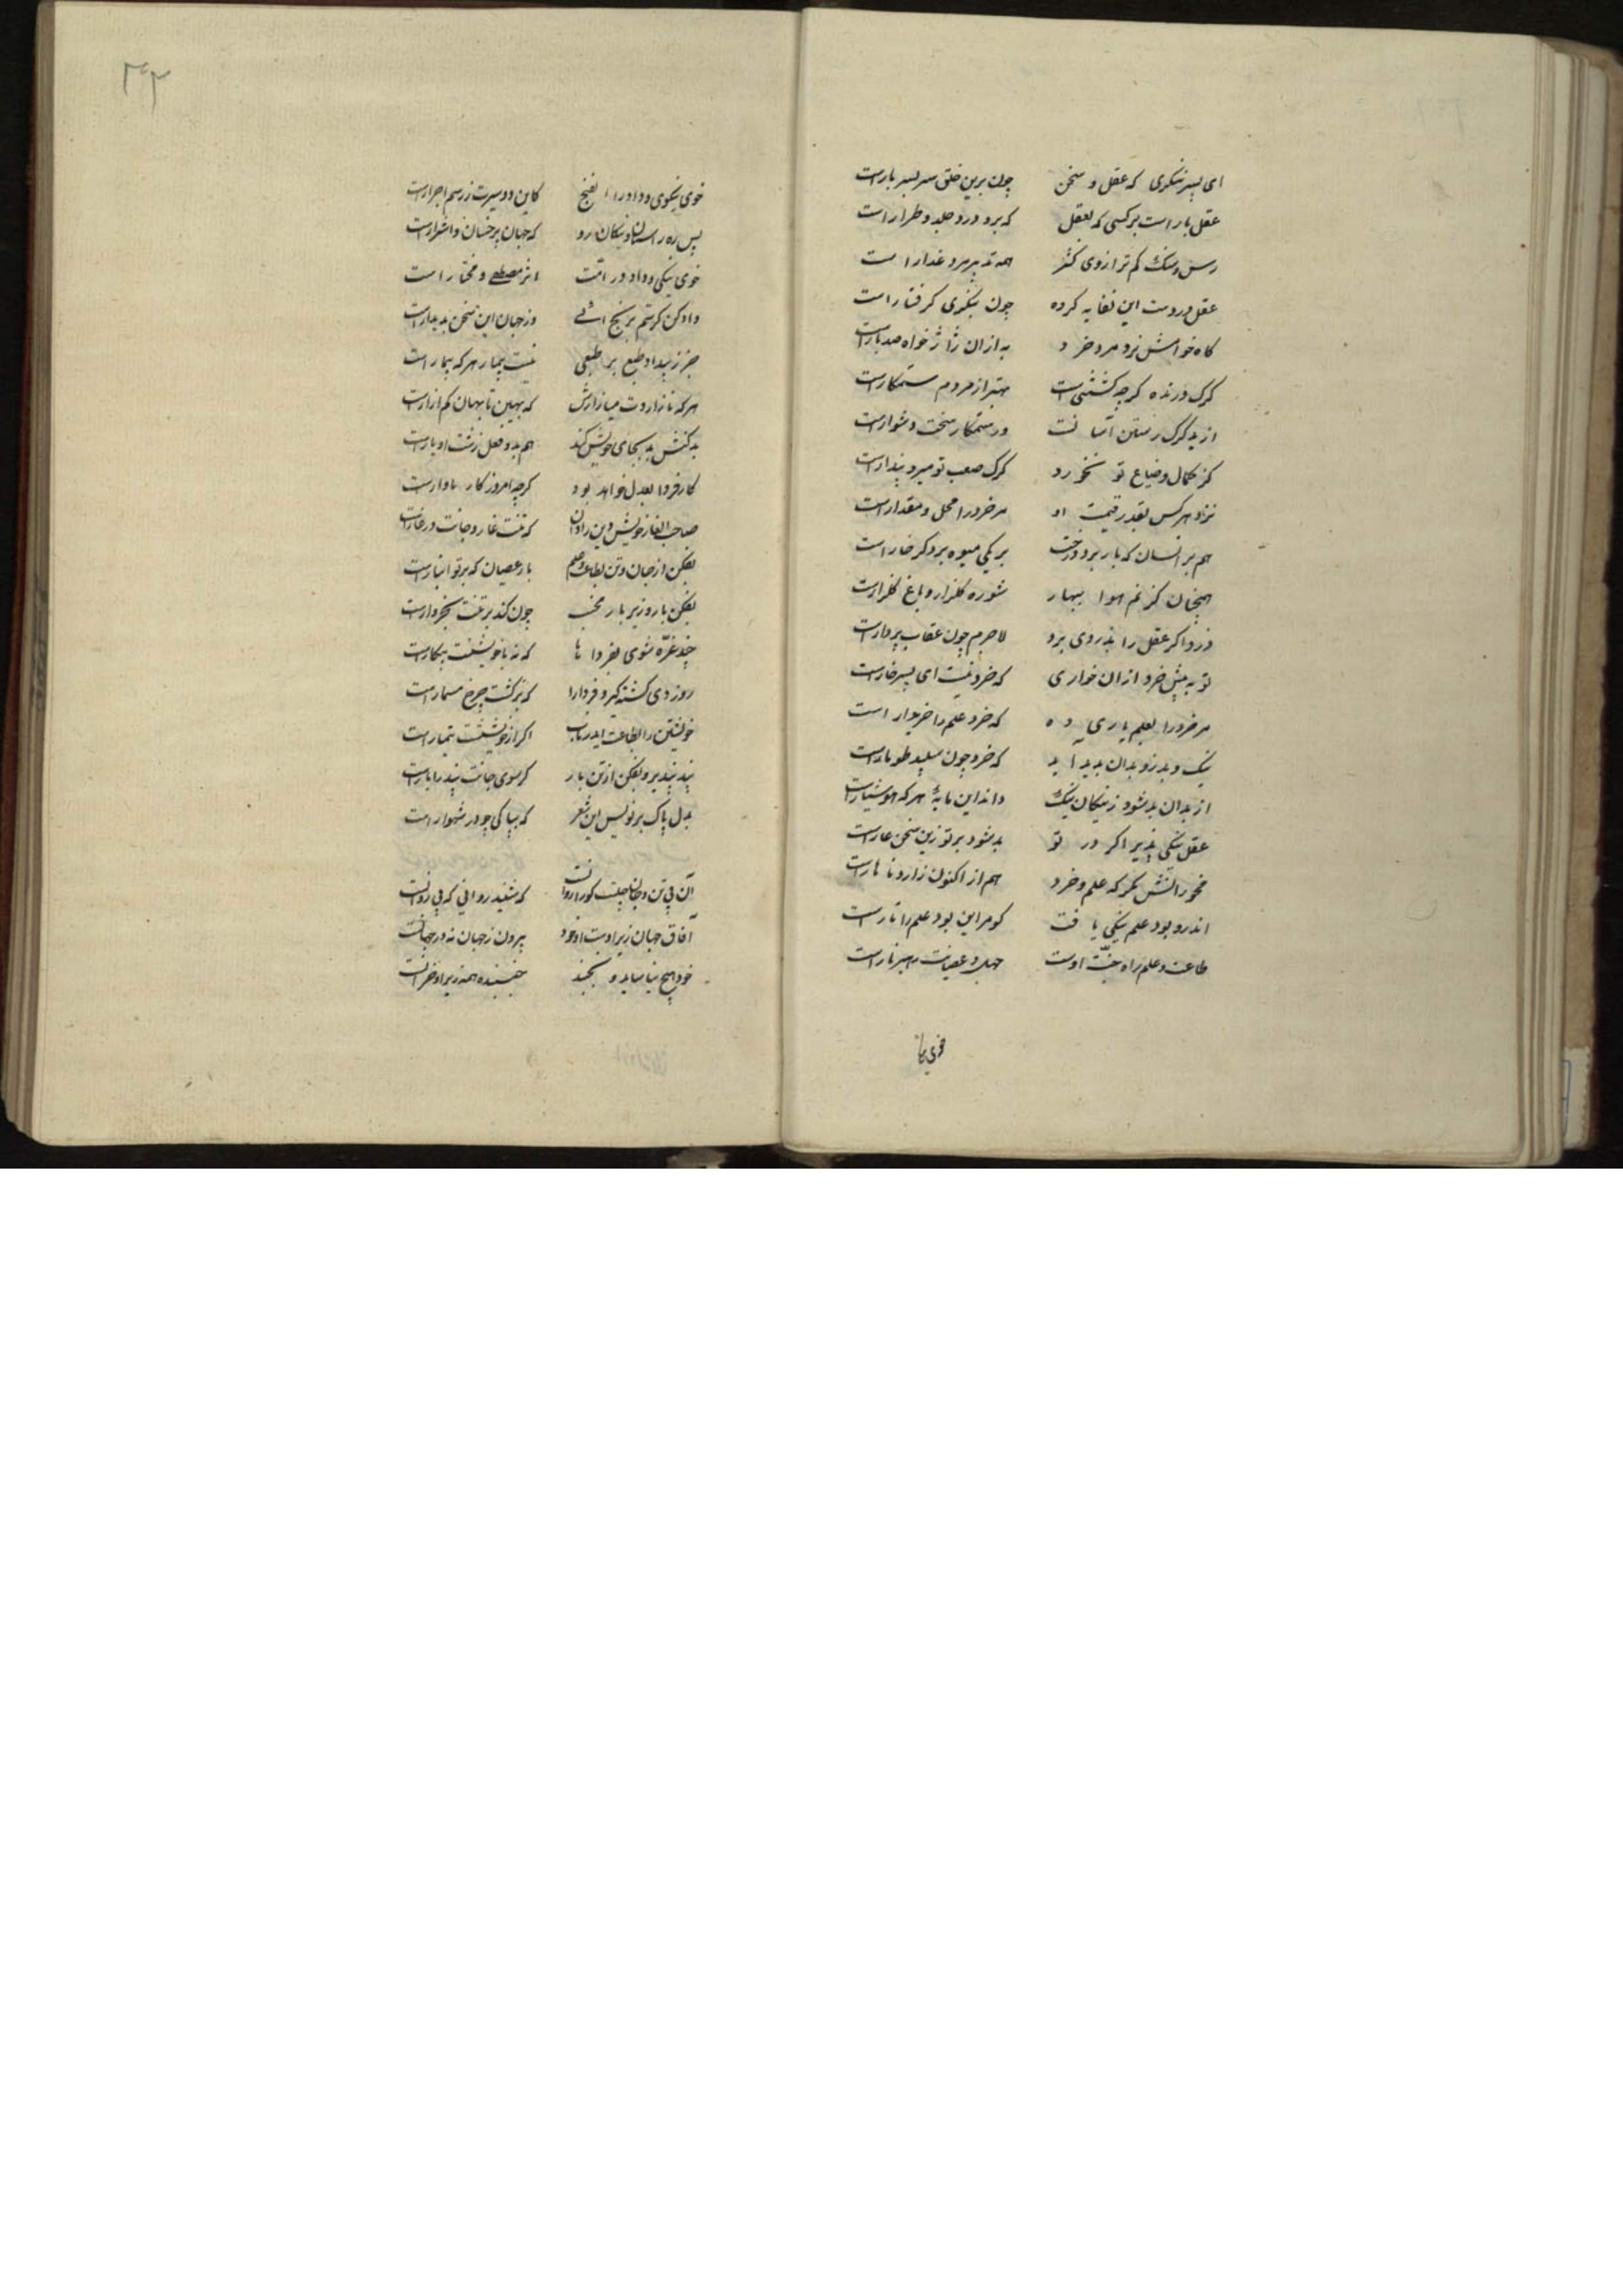 ای پسر بنگری که عقل و سخن چون برین خلق سر بسر بار است
عقل بار است بر کسی که بعقل که برد درد جلد و طرار است
رسن و سنک کم ترازوی کنژ همه تدبیر مرد غدار است
عقل در دست این نفایه کروه چون بنکری کرفتار است
کاه خوامش نزد مرد خرد به از ان ژاژ خواه صد بار است
کرک درنده کرچه کشتنی است بهتر از مردم ستمکار است
از بد کرک رستن آسانست وز ستمکار سخت دشوار است
کز کمال و ضیاع تو نخورد کرک صعب تو میر و بندار است
نزد هر کس بقدر و قیمت او مر خرد را محل و مقدار است
هم بر انسان که بار برد درخت بر یکی میوه بر دکر خار است
همچنان کز نم هوا ببهار شوره کلزار و باغ کلزار است
دزد اکر عقل را بدزدی برد لاجرم چون عقاب بردار است
تو به پیش خرد ازان خواری که خرد نیست ای پسر خار است
مر خرد را بعلم یاری ده که خرد علم را خریدار است
نیک و بد زو بدان پدید آید که خرد چون سپید طومار است
از بدان بد شود ز نیکان نیک داند این مایه هر که هوشیار است
عقل نیکی پذیر اکر در تو بد شود بر تو زین سخن عار است
هم از اکنون
اندرو بود علم نیکی یافت کو مر این بود علم را تار است
طاعت و علم راه جنت اوست جهل و عصیانت رهبر نار است
خوی نیکا
۳۲
خوی نیکوی و داد را الفنج کاین دو سیرت ز رسم احرار است
پس ره راستان و نیکان رو که جهان پر خسان و اشرار است
خوی نیکی و داد در امت اثر مصطفی و مختار است
داد کن کر ستم برنج اندر وز جهان این سخن پدیدار است
جز ز بیداد طبع بر طبعی نیست بیمار هر که بیمار است
هر که نازاردت میازارش که بهین تا بهان کم آزار است
بد کنش بد بجای خویش کند هم بدو فعل زشت او بار است
کار فردا بعدل خواهد بود کرچه امروز کار ناوار است
صاحب الغار خویش دین را دان که تنت غار و جانت در غار است
بفکن از جان و تن بطاعت و علم بار عصیان که بر تو انبار است
بفکن بار و زیر بار مخسب چون کند بر تنت بخروار است
چند غره شوی بفردا ها که نه با خویشتنت پیکار است
روز دی کشته کیر و فردا را که برکشت چرخ مسمار است
خویشتن را بطاعت اندر یاب اکر از خویشتنت تیمار است
پند بپذیر و بفکن از تن بار کر سوی جانت پند را بار است
بدل پاک بر نویس این شعر که بپاکی چو در شهوار است
آن بی تن و جان چیست کو روانست که شنید روانی که بی روانست
آفاق جهان زیر اوست او خود بیرون ز جهان نه در جهانست
خود هیچ نیاساید و نجنبد جنبنده همه زیر او خرانست